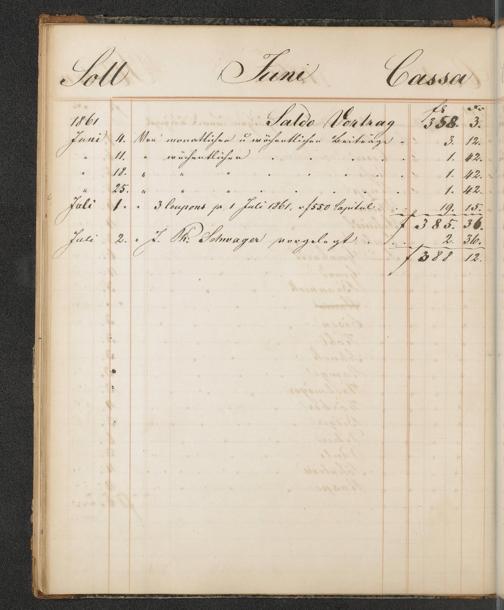 Soll Juni Cassa
fl xr.
1861 Saldo Vortrag 358. 3.
Juni 4. Von monatlichen u wöchentlichen Beiträge 3. 12.
" 11. " wöchentlichen 1. 42.
" 18. " " 1. 42.
" 25. " " 1. 42.
Juli 1. " 3 Coupons pr 1 Juli 1861. v/f 550 Capital 19. 15.
f 385. 36.
Juli 2. " J. Schwager vorgelegt 2. 36.
f 388 12.